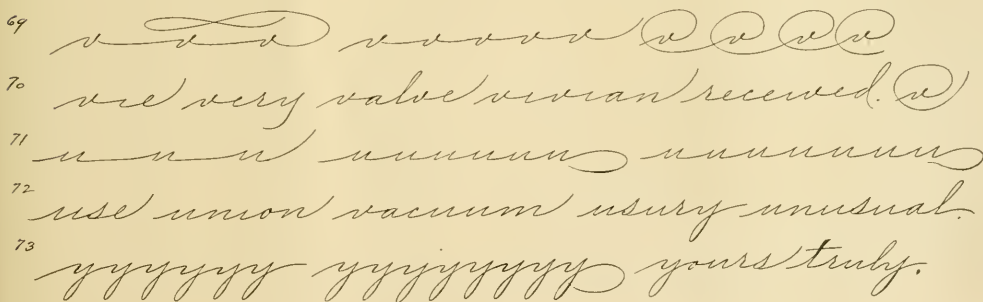 69 v v v v v v v v v v v v
70 vie very valve vivian received. v
71 u u u uuuuuu uuuuuuuu
72 use union vacuum usury unusual.
73 yyyyyy yyyyyyyy yours truly.